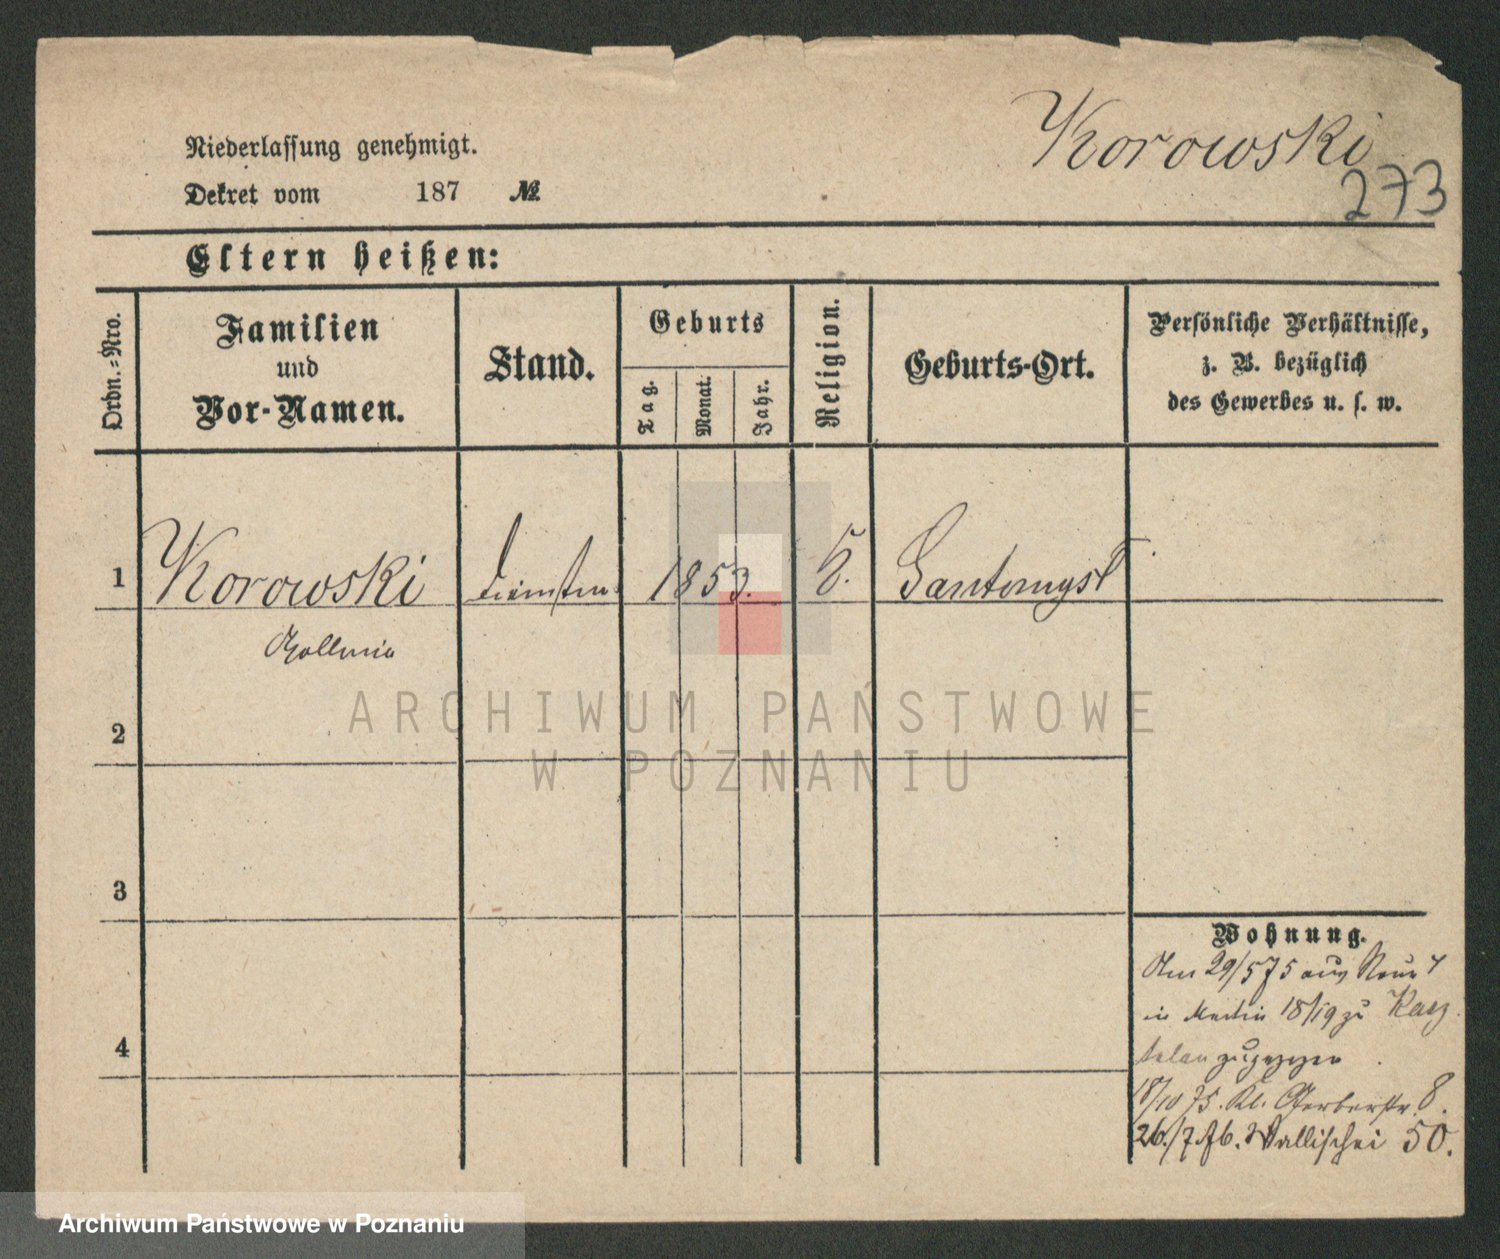 Korowski
273
Niederlassung genehmigt.
Dekret vom 187 №
Eltern heißen:
Ordn.=Nro.
Familien
und
Vor-Namen.
Stand.
Geburts
Tag.
Monat.
Jahr.
Religion.
Geburts-Ort.
Persönliche Verhältnisse,
z. B. bezüglich
des Gewerbes u. s. w.
1
Korowski
1853.
Santomysl
2
3
4
Wohnung.
Am 29/5 75 aus
18/19 zu
zugezogen
18/10 75. Kl. Gerberstr. 8.
26./7. 76. Wallischei 50.
ARCHIWUM PAŃSTWOWE
W POZNANIU
Archiwum Państwowe w Poznaniu